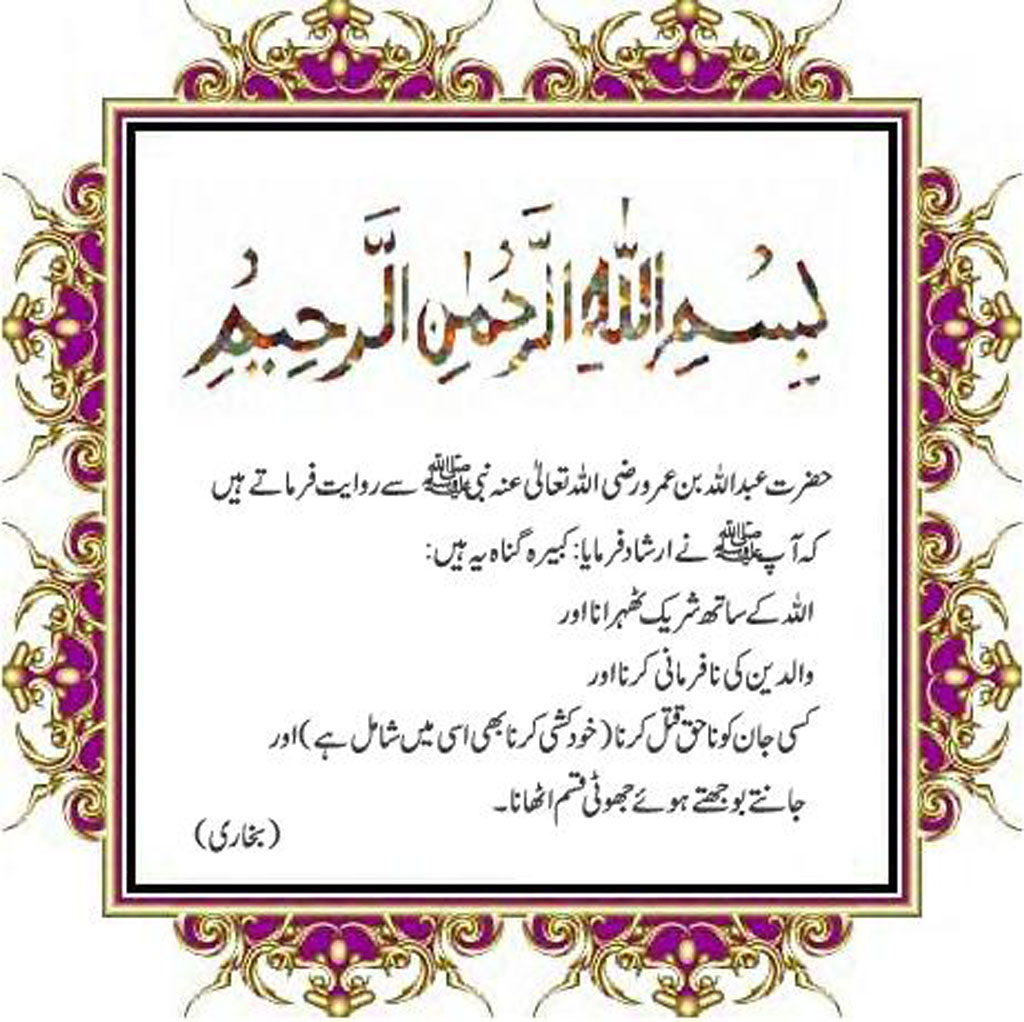 بِسْمِ اللّٰهِ الرَّحْمٰنِ الرَّحِيْمِ
حضرت عبداللہ بن عمرو رضی اللہ تعالیٰ عنہ نبی ﷺ سے روایت فرماتے ہیں
کہ آپ ﷺ نے ارشاد فرمایا: کبیرہ گناہ یہ ہیں:
اللہ کے ساتھ شریک ٹھہرانا اور
والدین کی نافرمانی کرنا اور
کسی جان کو ناحق قتل کرنا (خودکشی کرنا بھی اسی میں شامل ہے) اور
جانتے بوجھتے ہوئے جھوٹی قسم اٹھانا۔
(بخاری)